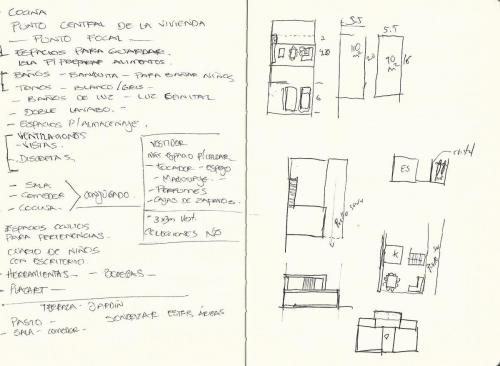 - COCINA
PUNTO CENTRAL DE LA VIVIENDA
— PUNTO FOCAL —
ESPACIOS PARA GUARDAR.
ISLA P/PREPARAR ALIMENTOS.
BAÑOS - BAÑERITA - PARA BAÑAR NIÑOS
- TONOS - BLANCO/GRIS -
- BAÑOS DE LUZ - LUZ CENITAL
- DOBLE LAVABO. -
- ESPACIOS P/ALMACENAJE.
VENTILACIONES
- VISTAS.
- DISCRETAS.
VESTIDOR
MÁS ESPACIO P/
- TOCADOR - ESPEJO
- MAQUILLAJE -
- PERFUMES
- CAJAS DE ZAPATOS.
COLECCIONES NO
- SALA
- COMEDOR
- COCINA
CONJUGADO
ESPACIOS OCULTOS
PARA PERTENENCIAS.
CUARTO DE NIÑOS
CON ESCRITORIO.
- HERRAMIENTAS - BODEGAS -
- PLACART -
TERRAZA - JARDÍN
PASTO -
SONDEAR ESTAS ÁREAS
- SALA - COMEDOR -
2
6
5.5
110
m²
20
5.5
90
m²
16
ES